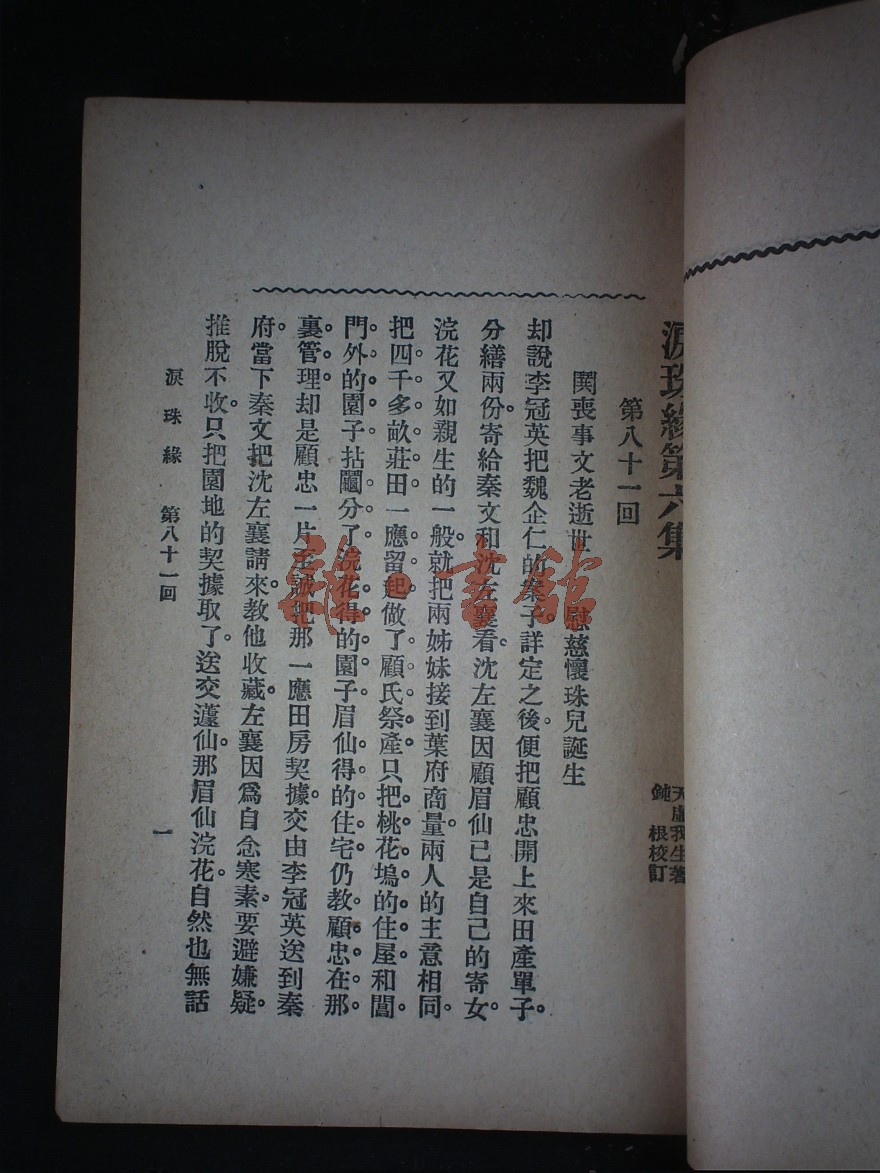 淚珠緣第六集
天虛我生著
鈍根校訂
第八十一回
鬨喪事文老逝世　慰慈懷珠兒誕生
却說李冠英把魏企仁的案子詳定之後便把顧忠開上來田產單子。
分繕兩份。寄給秦文和沈左襄看。沈左襄因顧眉仙已是自己的寄女
浣花又如親生的一般。就把兩姊妹接到葉府商量。兩人的主意相同。
把四千多畝莊田一應留起做了顧氏祭產。只把桃花塢的住屋和閶
門外的園子拈鬮分了。浣花得的園子。眉仙得的住宅。仍教顧忠在那
裏管理。却是顧忠一片至誠把那一應田房契據。交由李冠英送到秦
府。當下秦文把沈左襄請來。教他收藏。左襄因爲自念寒素。要避嫌疑。
推脫不收。只把園地的契據取了。送交蘧仙。那眉仙浣花。自然也無話
淚珠緣　第八十一回
一
雜·書館